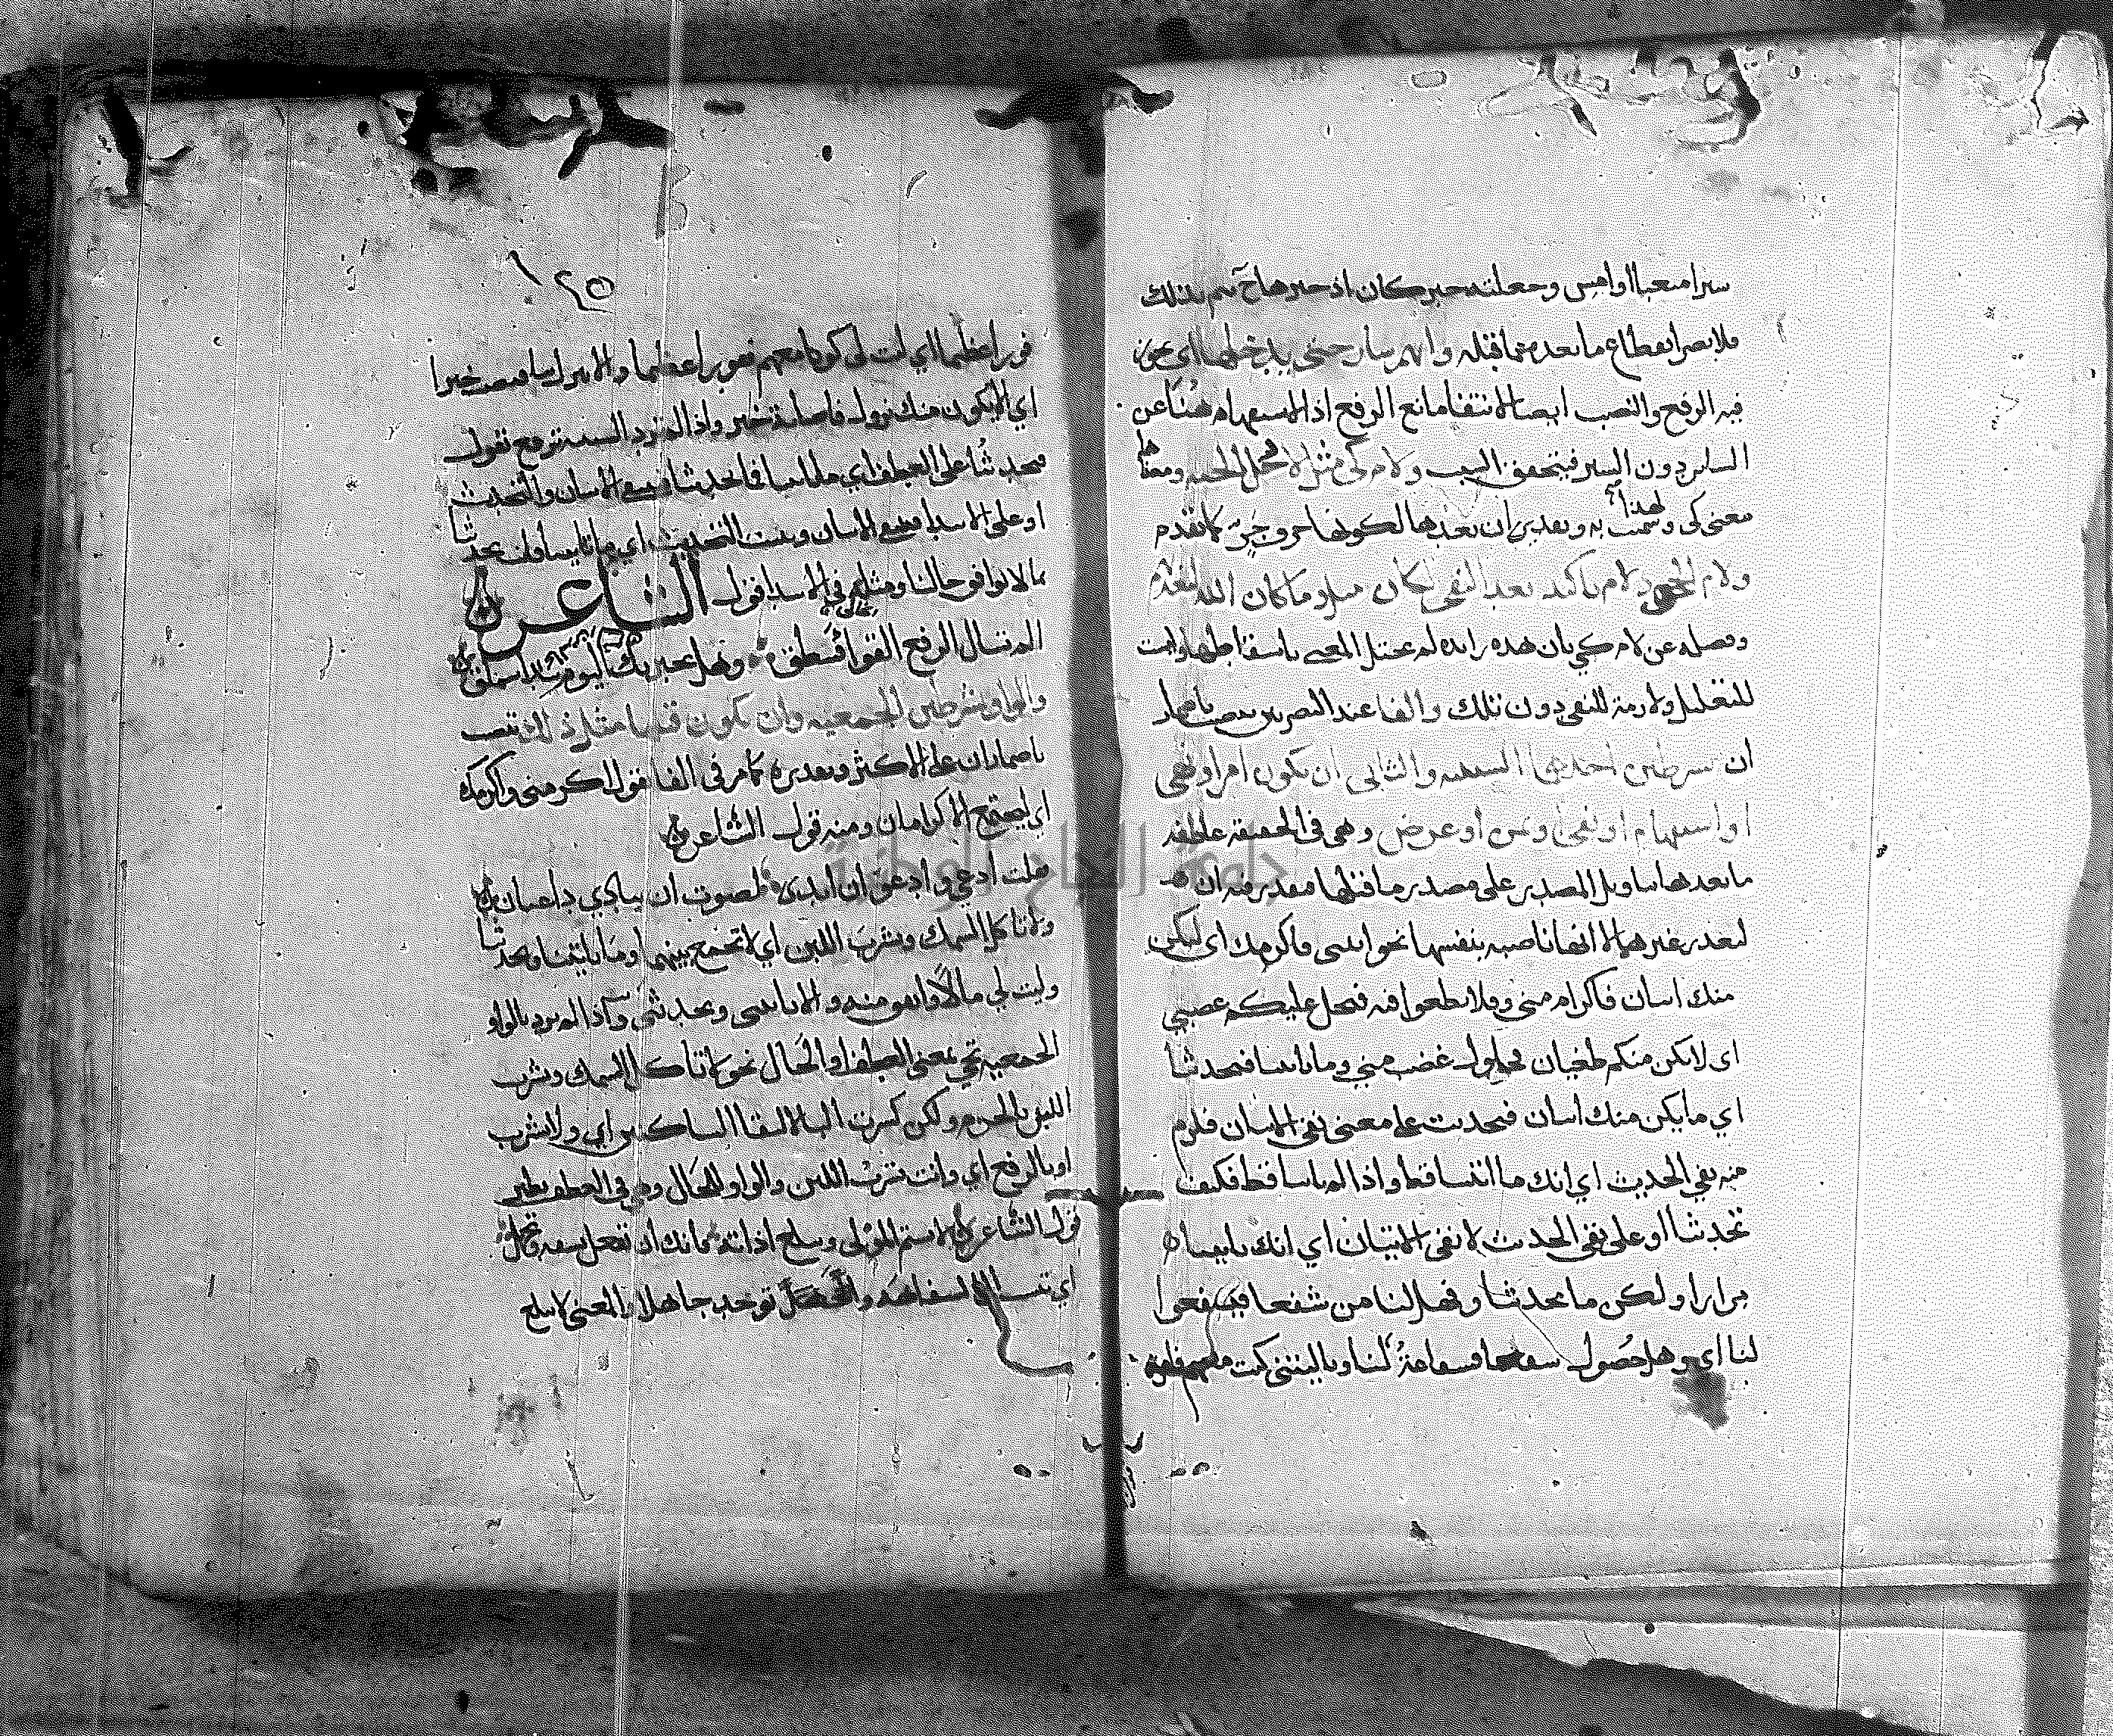 سيرا متعبا او امس وجعلته خبر كان اذ خبرها ح يتم بذلك
فلا يضر انقطاع ما بعده عما قبله وايهم سار حتى يدخلها اي يجوز
فيه الرفع والنصب ايضا لانتفا مانع الرفع اذ الاستفهام هنا عن
الساير دون السير فيتحقق السبب ولام كي مثل لادخل الجنه ومعناها
معنى كي ولهذا سميت به وتقدير ان بعدها لكونها حرف جر كما تقدم
ولام الجحود لام تاكيد بعد النفي لكان مثل وما كان الله ليعذبهم
وفصله عن لام كي بان هذه زايده لم يختل المعنى باسقاطها وليست
للتعليل ولازمة للنفي دون تلك والفا عند البصريين ينصب باضمار
ان بشرطين احدهما السببيه والثاني ان يكون امر او نهي
او استفهام او نفي او تمن او عرض وهي في الحقيقه عاطفه
ما بعدها بتاويل المصدر على مصدر ما قبلها مقدر فيه ان
لتعذر غيرها لا انها ناصبه بنفسها نحو ايتني فاكرمك اي ليكن
منك اتيان فاكرام مني ولا تطغوا فيه فيحل عليكم غضبي
اي لا يكن منكم طغيان فحلول غضب مني وما تاتينا فتحدثنا
اي ما يكن منك اتيان فتحديث على معنى نفي الاتيان فلزم
منه نفي الحديث اي انك ما اتيتنا قط واذا لم تاتنا قط فكيف
تحدثنا او على نفي الحديث لا نفي الاتيان اي انك تاتينا
مرارا ولكن ما تحدثنا وفهل لنا من شفعا فيشفعوا
لنا اي هل حصول شفعا فشفاعة لنا ويا ليتني كنت معهم فافوز
١٢٥
فوزا عظيما اي ليت لي كونا معهم ففوزا عظيما والا تنزل بنا فتصيب خيرا
اي الا يكون منك نزول فاصابة خير واذا لم ترد السببيه ترفع تقول
فتحدثنا على العطف اي ما تاتينا فما تحدثنا فنفي الاتيان والتحديث
او على الابتدا فنفي الاتيان ويثبت التحديث اي ما تاتينا فانت تحدثنا
بما لا يوافق حالنا ومثله في الابتدا قول الشاعر
الم تسال الربع القوا فينطق وهل تخبرنك اليوم بيدا سملق
والواو بشرطين الجمعيه وان يكون قبلها مثل ذلك تنصب
باضمار ان على الاكثر وتقديره كما مر في الفا فقولك اكرمني واكرمك
اي ليجتمع الاكرامان ومنه قول الشاعر
فقلت ادعي وادعو ان اندى لصوت ان ينادي داعيان
ولا تاكل السمك وتشرب اللبن اي لا تجمع بينهما وما تاتينا وتحدثنا
وليت لي مالا وانفق منه والا تاتيني وتحدثني واذا لم ترد بالواو
الجمعيه تجي بمعنى العطف او الحال نحو لا تاكل السمك وتشرب
اللبن بالجزم ولكن كسرت البا لالتقا الساكنين اي ولا تشرب
او بالرفع اي وانت تشرب اللبن والواو للحال وهو في العطف نظير
قول الشاعر لا تشتم المولى وتبلغ اذاته فانك ان تفعل تسفه وتجهل
اي تنسب الى السفاهه والجهل توجد جاهلا والمعنى لا تبلغ
جامعة النجاح الوطنية